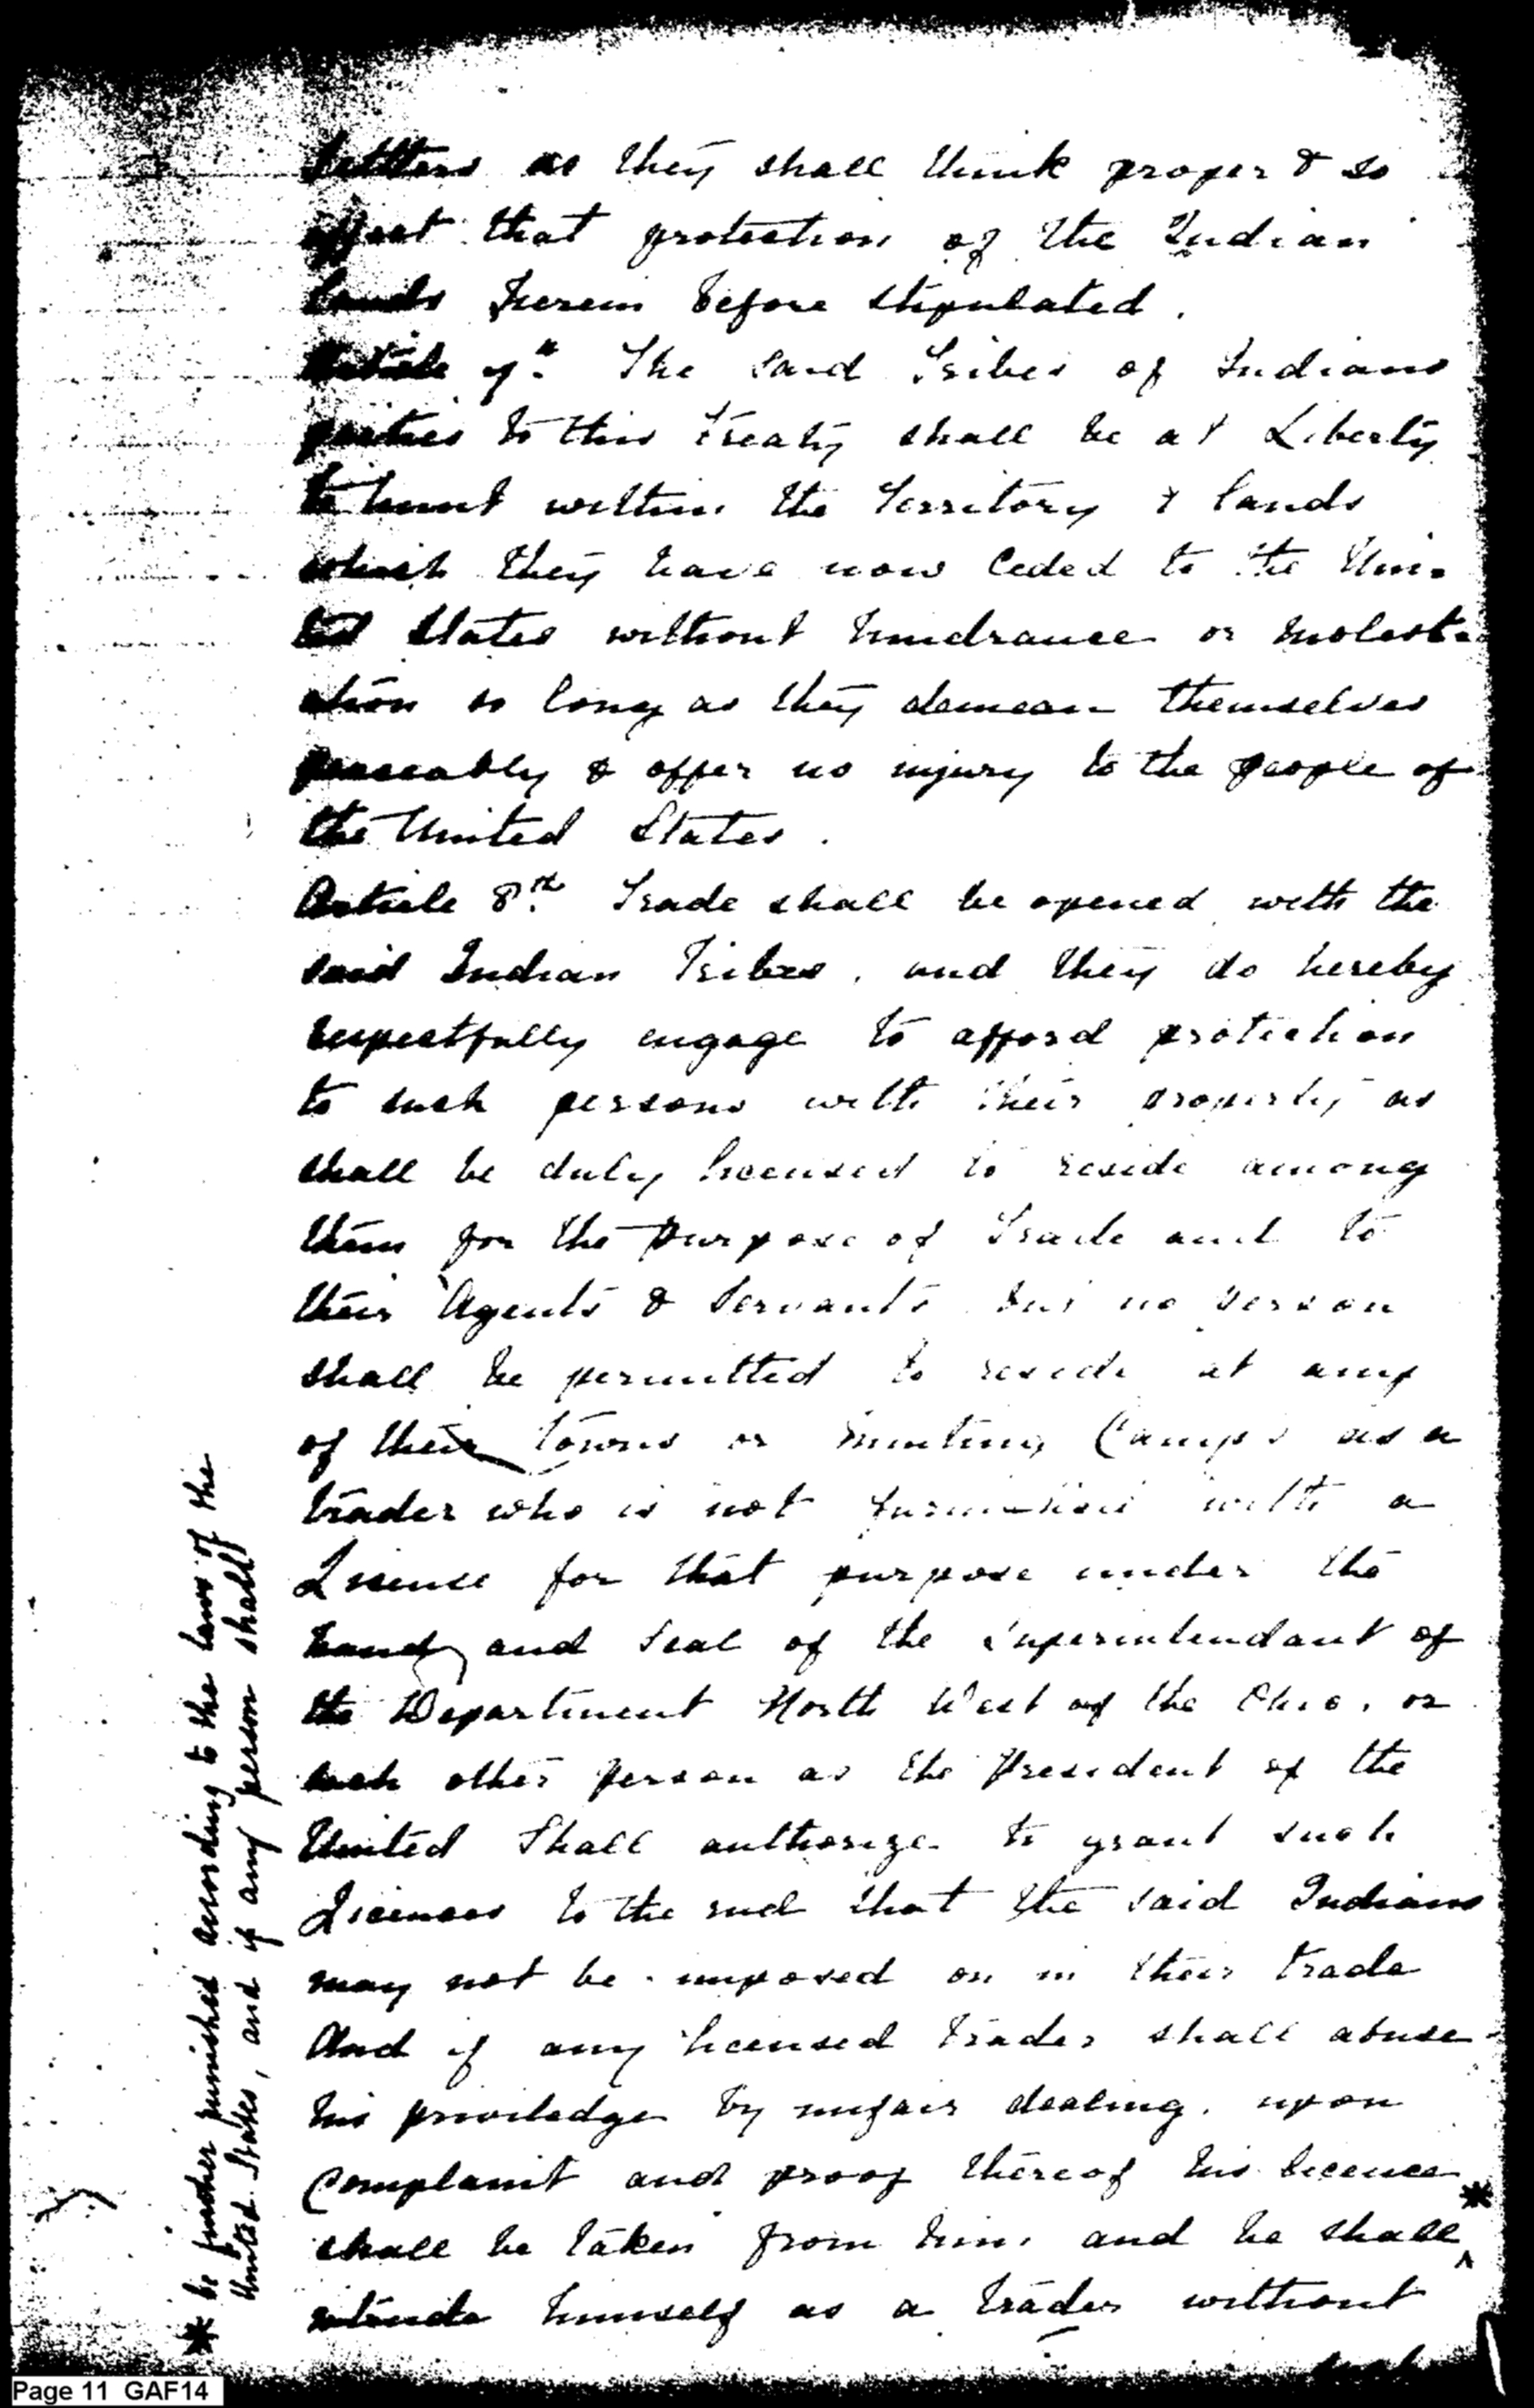 Settlers as they shall think proper & so
effect that protection of the Indian
lands herein before stipulated.
Article 7th. The said Tribes of Indians
parties to this treaty shall be at Liberty
to hunt within the Territory & lands
which they have now ceded to the Uni-
ted States without hindrance or molest-
ation so long as they demean themselves
peaceably & offer no injury to the people of
the United States.
Article 8th. Trade shall be opened with the
said Indian Tribes, and they do hereby
respectfully engage to afford protection
to such persons with their property as
shall be duly licensed to reside among
them for the purpose of Trade and to
their Agents & Servants but no person
shall be permitted to reside at any
of their towns or hunting Camps as a
trader who is not furnished with a
Licence for that purpose under the
hand and Seal of the Superintendant of
the Department North West of the Ohio, or
such other person as the President of the
United Shall authorize to grant such
Licences to the end that the said Indians
may not be imposed on in their trade
And if any licensed trader shall abuse
his priviledge by unfair dealing, upon
Complaint and proof thereof his licence
shall be taken from him, and he shall *
intrude himself as a trader without
such
* be further punished according to the laws of the
United States, and if any person shall
Page 11 GAF14